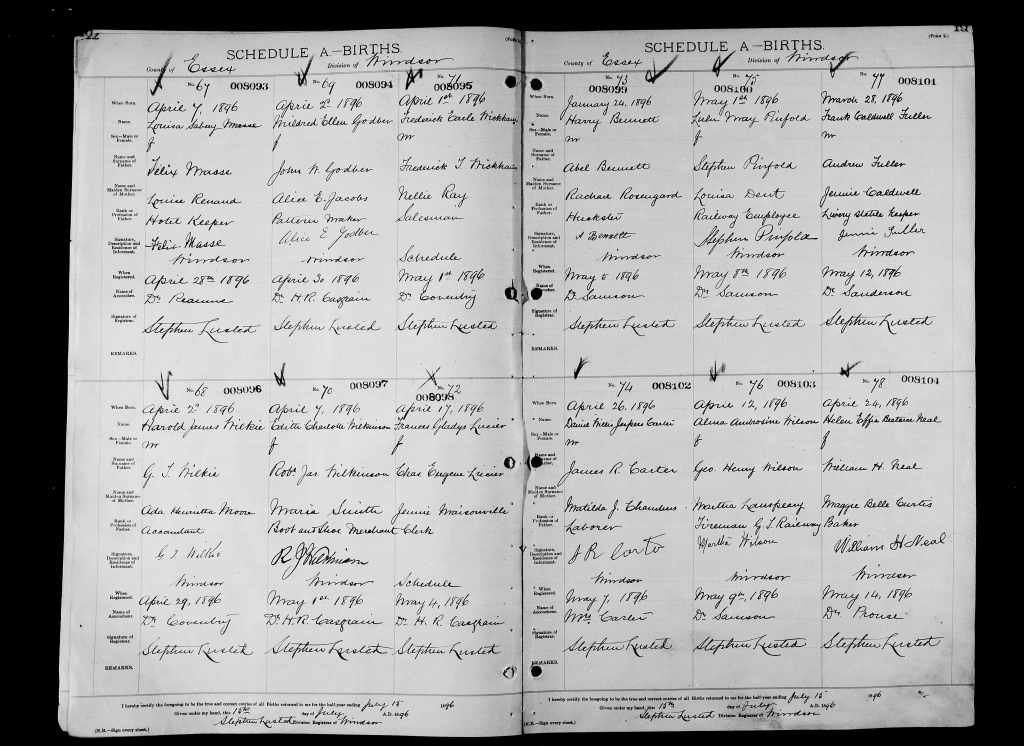 SCHEDULE A—BIRTHS.
County of Essex Division of Windsor
No. 67 008093 No. 69 008094 No. 71 008095
When Born. April 7, 1896 April 2d 1896 April 1st 1896
Name. Louisa Masse Mildred Ellen Godber Frederick Earle Wickham
Sex—Male or Female. f f m
Name and Surname of Father. Felix Masse John W. Godber Frederick T. Wickham
Name and Maiden Surname of Mother. Louise Renaud Alice E. Jacobs Nellie Ray
Rank or Profession of Father. Hotel Keeper Pattern Maker Salesman
Signature, Description and Residence of Informant. Felix Masse Alice E Godber
Windsor Windsor Schedule
When Registered. April 28th 1896 April 30 1896 May 1st 1896
Name of Accoucheur. Dr Reaume Dr H.R. Casgrain Dr Coventry
Signature of Registrar. Stephen Lusted Stephen Lusted Stephen Lusted
REMARKS.
No. 68 008096 No. 70 008097 No. 72 008098
When Born. April 2d, 1896 April 7, 1896 April 17, 1896
Name. Harold James Wilkie Edith Charlotte Wilkinson Frances Gladys Lucier
Sex—Male or Female. m f f
Name and Surname of Father. G. T. Wilkie Robt Jas Wilkinson Chas Eugene Lucier
Name and Maiden Surname of Mother. Ada Henrietta Moore Maria Smith Jennie Maisonville
Rank or Profession of Father. Accountant Boot and Shoe Merchant Clerk
Signature, Description and Residence of Informant. G T Wilkie R J Wilkinson
Windsor Windsor Schedule
When Registered. April 29, 1896 May 1st 1896 May 4, 1896
Name of Accoucheur. Dr Coventry Dr H.R. Casgrain Dr H. R. Casgrain
Signature of Registrar. Stephen Lusted Stephen Lusted Stephen Lusted
REMARKS.
I hereby certify the foregoing to be the true and correct entries of all Births returned to me for the half-year ending July 15 1896
Given under my hand, this 15th day of July A.D. 1896
Stephen Lusted Division Registrar of Windsor
(N.B.—Sign every sheet.)
SCHEDULE A—BIRTHS.
County of Essex Division of Windsor
No. 73 008099 No. 75 008100 No. 77 008101
When Born. January 24, 1896 May 1st 1896 March 28, 1896
Name. Harry Bennett Lulu May Pinfold Frank Caldwell Fuller
Sex—Male or Female. m f m
Name and Surname of Father. Abel Bennett Stephen Pinfold Andrew Fuller
Name and Maiden Surname of Mother. Rachael Rosengard Louisa Dent Jennie Caldwell
Rank or Profession of Father. Huckster Railway Employee Livery stable keeper
Signature, Description and Residence of Informant. A Bennett Stephen Pinfold Jennie Fuller
Windsor Windsor Windsor
When Registered. May 8 1896 May 8th 1896 May 12, 1896
Name of Accoucheur. Dr Samson Dr Samson Dr Sanderson
Signature of Registrar. Stephen Lusted Stephen Lusted Stephen Lusted
REMARKS.
No. 74 008102 No. 76 008103 No. 78 008104
When Born. April 26, 1896 April 12, 1896 April 24, 1896
Name. David Carter Alma Ambrosine Wilson Helen Effie Beatrice Neal
Sex—Male or Female. m f f
Name and Surname of Father. James R. Carter Geo. Henry Wilson William H. Neal
Name and Maiden Surname of Mother. Matilda J. Chambers Martha Lanspeary Maggie Belle Curtis
Rank or Profession of Father. Laborer Fireman G.T. Railway Baker
Signature, Description and Residence of Informant. J R Carter Martha Wilson William H Neal
Windsor Windsor Windsor
When Registered. May 7, 1896 May 9th, 1896 May 14, 1896
Name of Accoucheur. Mrs Carter Dr Samson Dr Prouse
Signature of Registrar. Stephen Lusted Stephen Lusted Stephen Lusted
REMARKS.
I hereby certify the foregoing to be the true and correct entries of all Births returned to me for the half-year ending July 15 1896
Given under my hand, this 15th day of July A.D. 1896
Stephen Lusted Division Registrar of Windsor
(N.B.—Sign every sheet.)